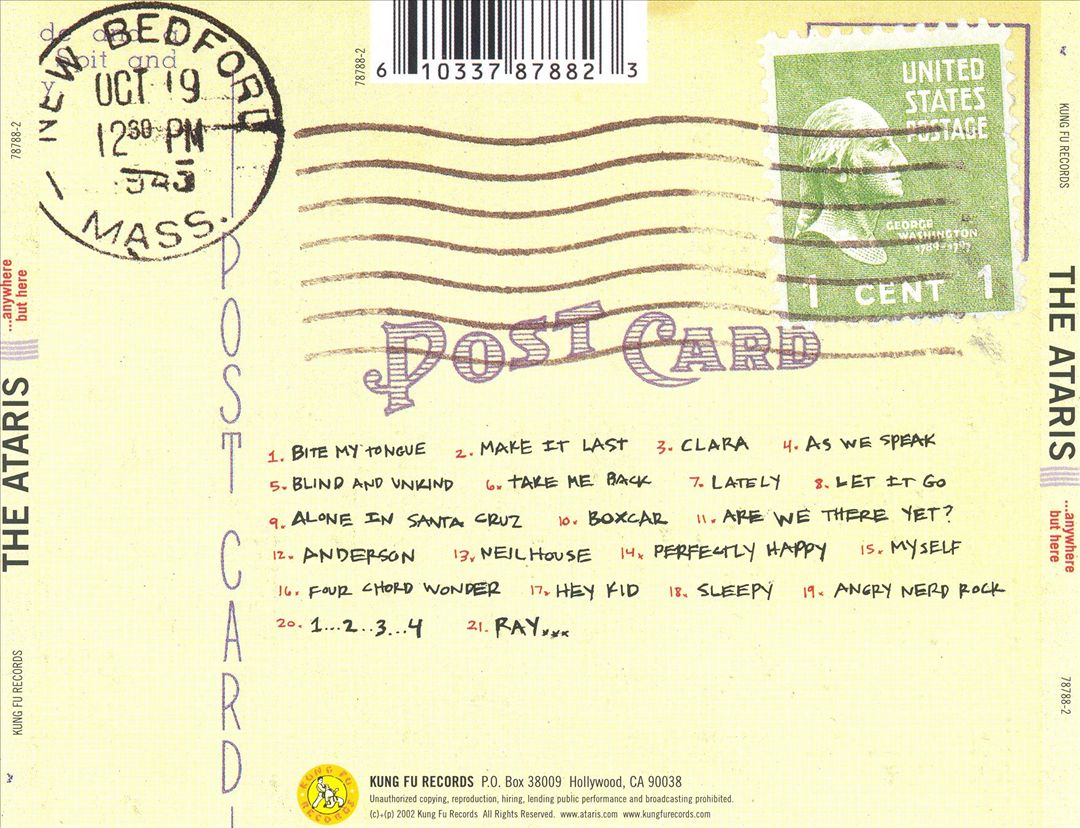 de and a
Spit and
y
NEW BEDFORD
OCT 19
12 30 PM
MASS.
78788-2
6 10337 87882 3
UNITED
STATES
POSTAGE
GEORGE
WASHINGTON
1789-1797
1 CENT 1
POST CARD
POST CARD
1. BITE MY TONGUE 2. MAKE IT LAST 3. CLARA 4. AS WE SPEAK
5. BLIND AND UNKIND 6. TAKE ME BACK 7. LATELY 8. LET IT GO
9. ALONE IN SANTA CRUZ 10. BOXCAR 11. ARE WE THERE YET?
12. ANDERSON 13. NEILHOUSE 14. PERFECTLY HAPPY 15. MYSELF
16. FOUR CHORD WONDER 17. HEY KID 18. SLEEPY 19. ANGRY NERD ROCK
20. 1...2...3...4 21. RAY...
KUNG FU RECORDS
KUNG FU RECORDS P.O. Box 38009 Hollywood, CA 90038
Unauthorized copying, reproduction, hiring, lending public performance and broadcasting prohibited.
(c)+(p) 2002 Kung Fu Records All Rights Reserved. www.ataris.com www.kungfurecords.com
KUNG FU RECORDS
THE ATARIS
...anywhere
but here
78788-2
KUNG FU RECORDS
THE ATARIS
...anywhere
but here
78788-2